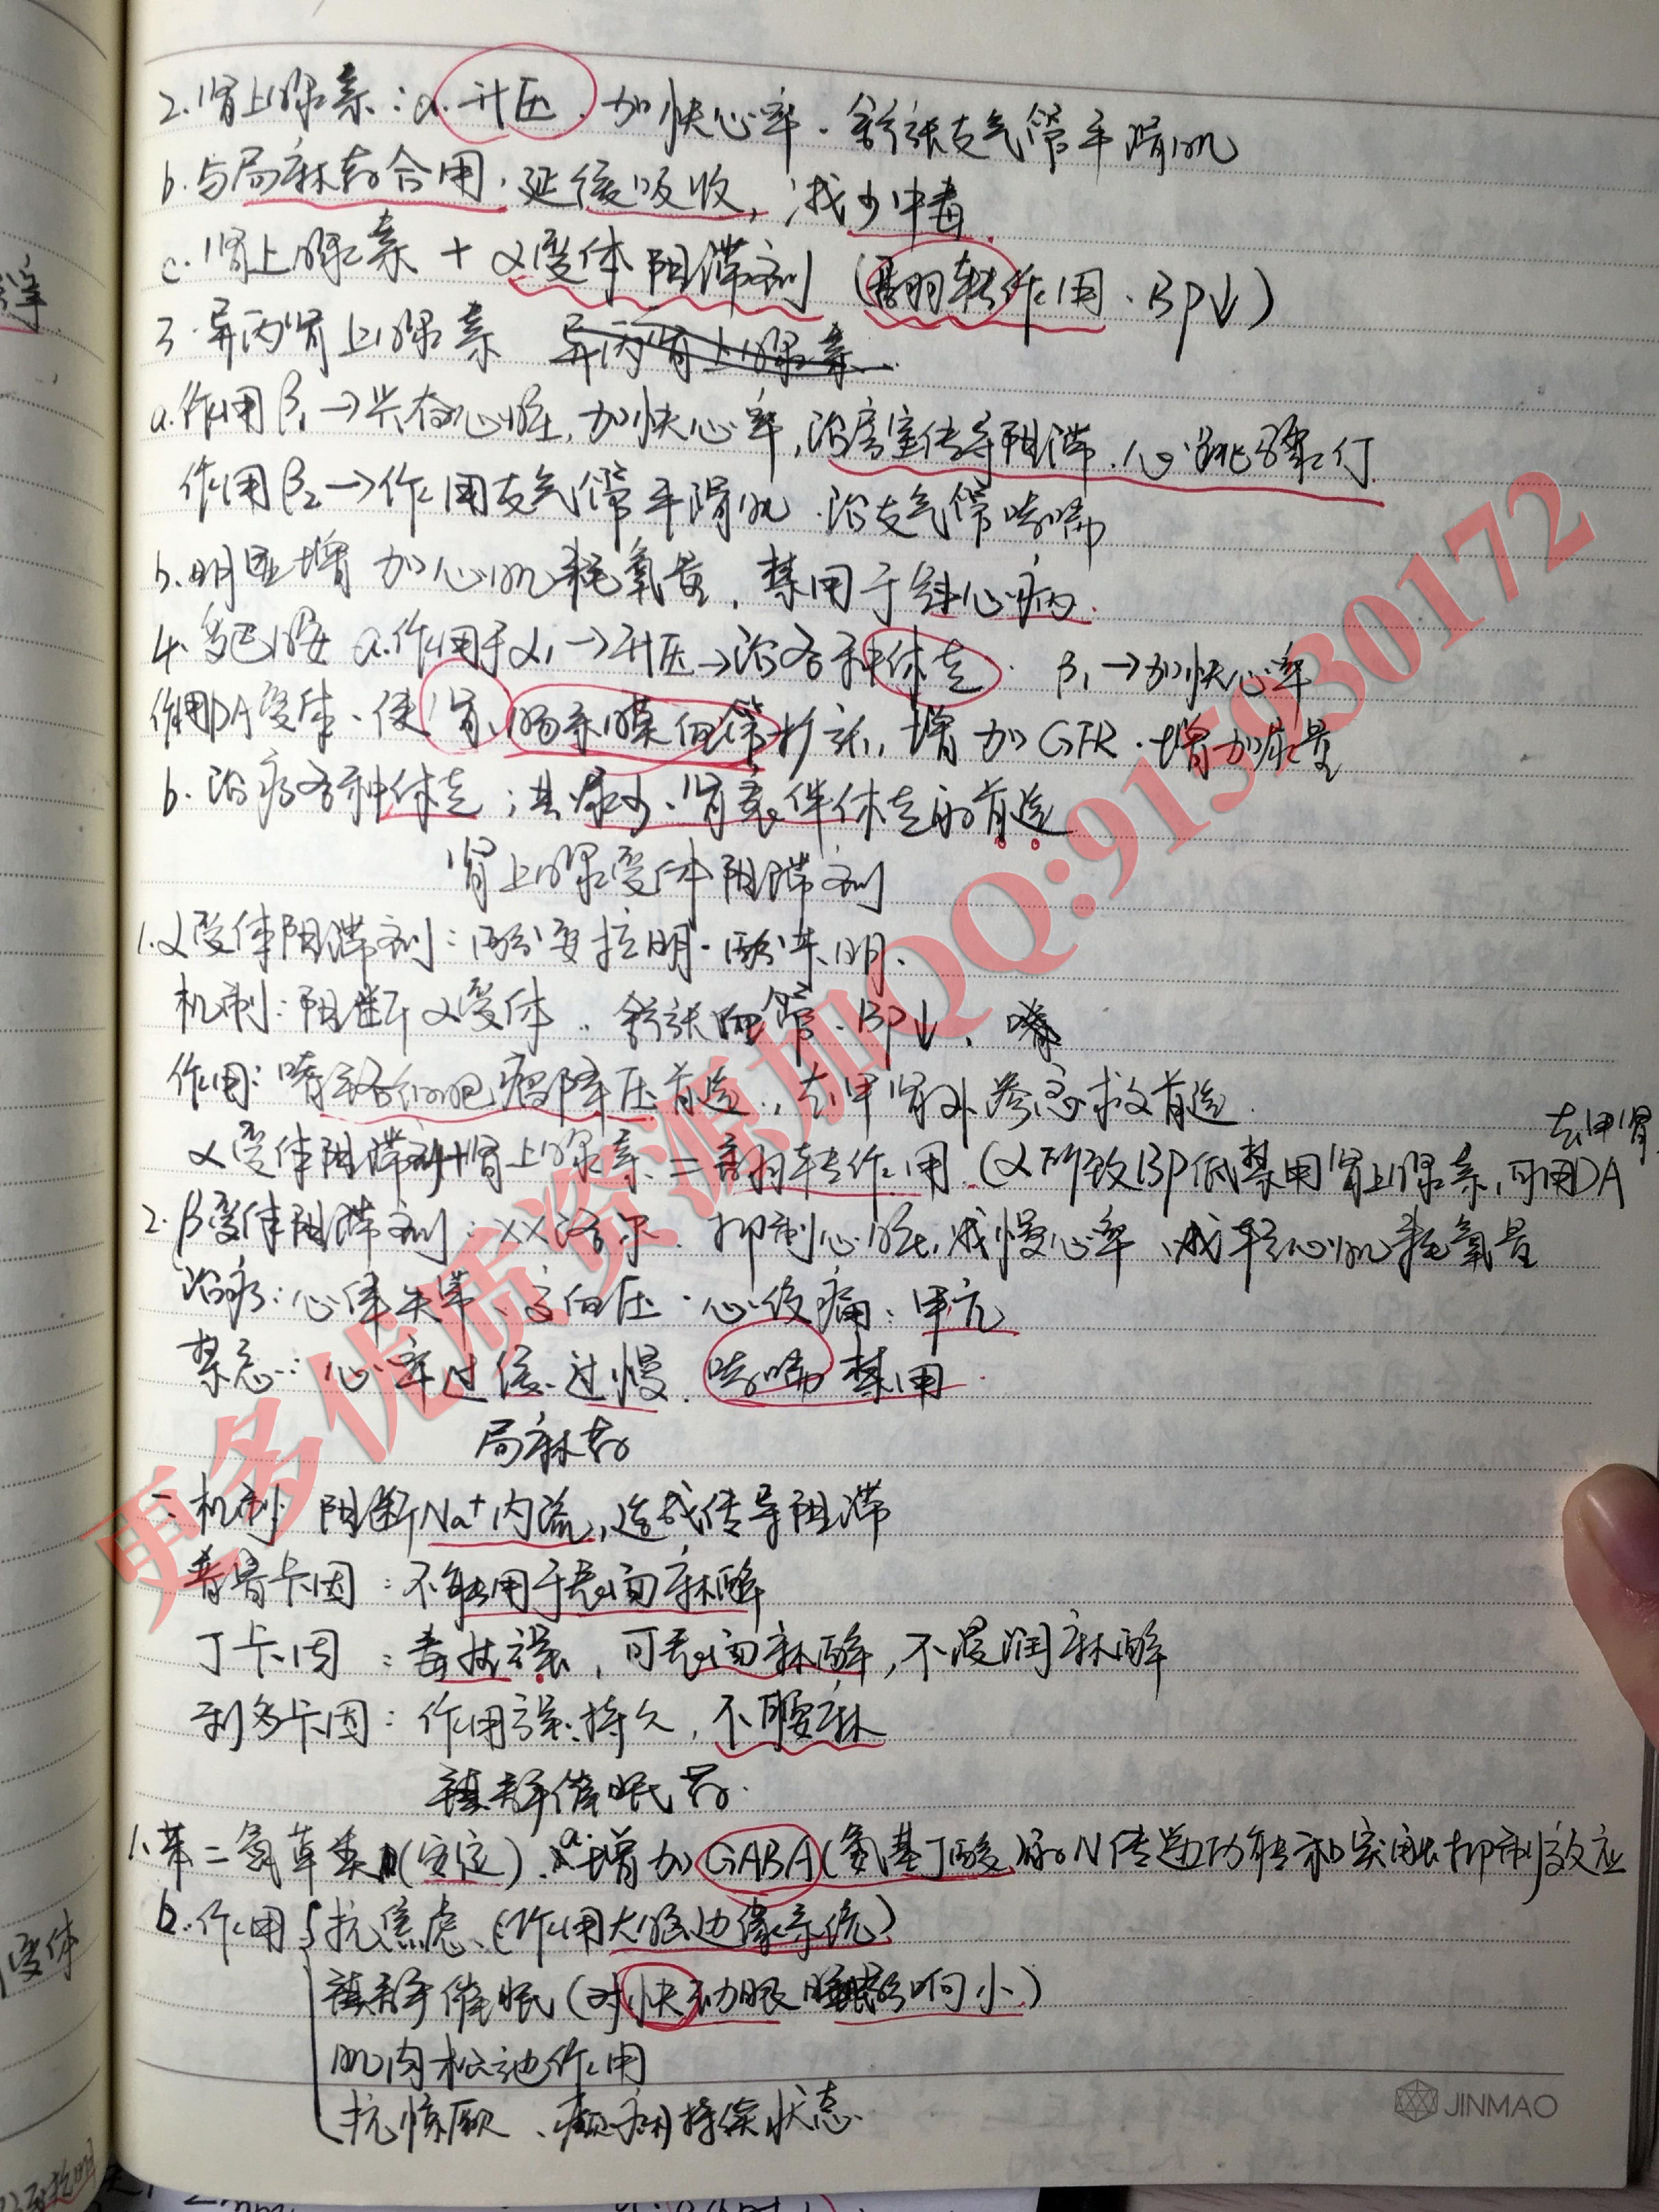 2.肾上腺素：a.升压、加快心率.舒张支气管平滑肌
b.与局麻药合用.延缓吸收，减少中毒.
c.肾上腺素+α受体阻滞剂（翻转作用.BP↓）
3.异丙肾上腺素 异丙肾上腺素
a.作用β₁→兴奋心脏，加快心率，治房室传导阻滞、心跳骤停
作用β₂→作用支气管平滑肌.治支气管哮喘
b.明显增加心肌耗氧量，禁用于冠心病.
4.多巴胺 a.作用于α₁→升压→治各种休克. β₁→加快心率
作用DA受体、使肾、肠系膜血管扩张，增加GFR.增加尿量
b.治疗各种休克；尤尿少、肾衰伴休克的首选
肾上腺受体阻滞剂
1.α受体阻滞剂：酚妥拉明.酚苄明.
机制：阻断α受体..舒张血管、BP↓、
作用：嗜铬细胞瘤降压首选.，去甲肾外渗急救首选.
α受体阻滞剂+肾上腺素=翻转作用.（α所致BP低禁用肾上腺素，可用DA
去甲肾
2.β受体阻滞剂：××洛尔.抑制心脏，减慢心率、减轻心肌耗氧量
治疗：心律失常、高血压.心绞痛、甲亢
禁忌：心率过缓.过慢.哮喘禁用.
局麻药
一.机制：阻断Na⁺内流，造成传导阻滞
普鲁卡因：不能用于表面麻醉
丁卡因：毒性强，可表面麻醉，不浸润麻醉
利多卡因：作用强.持久，不腰麻
镇静催眠药.
1.苯二氮䓬类（安定）.a.增加GABA（氨基丁酸）的N传递功能和突触抑制效应
b.作用 抗焦虑、（作用大脑边缘系统）
镇静催眠（对快动眼睡眠影响小）
肌肉松弛作用
抗惊厥、癫痫持续状态.
更多优质资源加QQ:915930172
JINMAO
受体